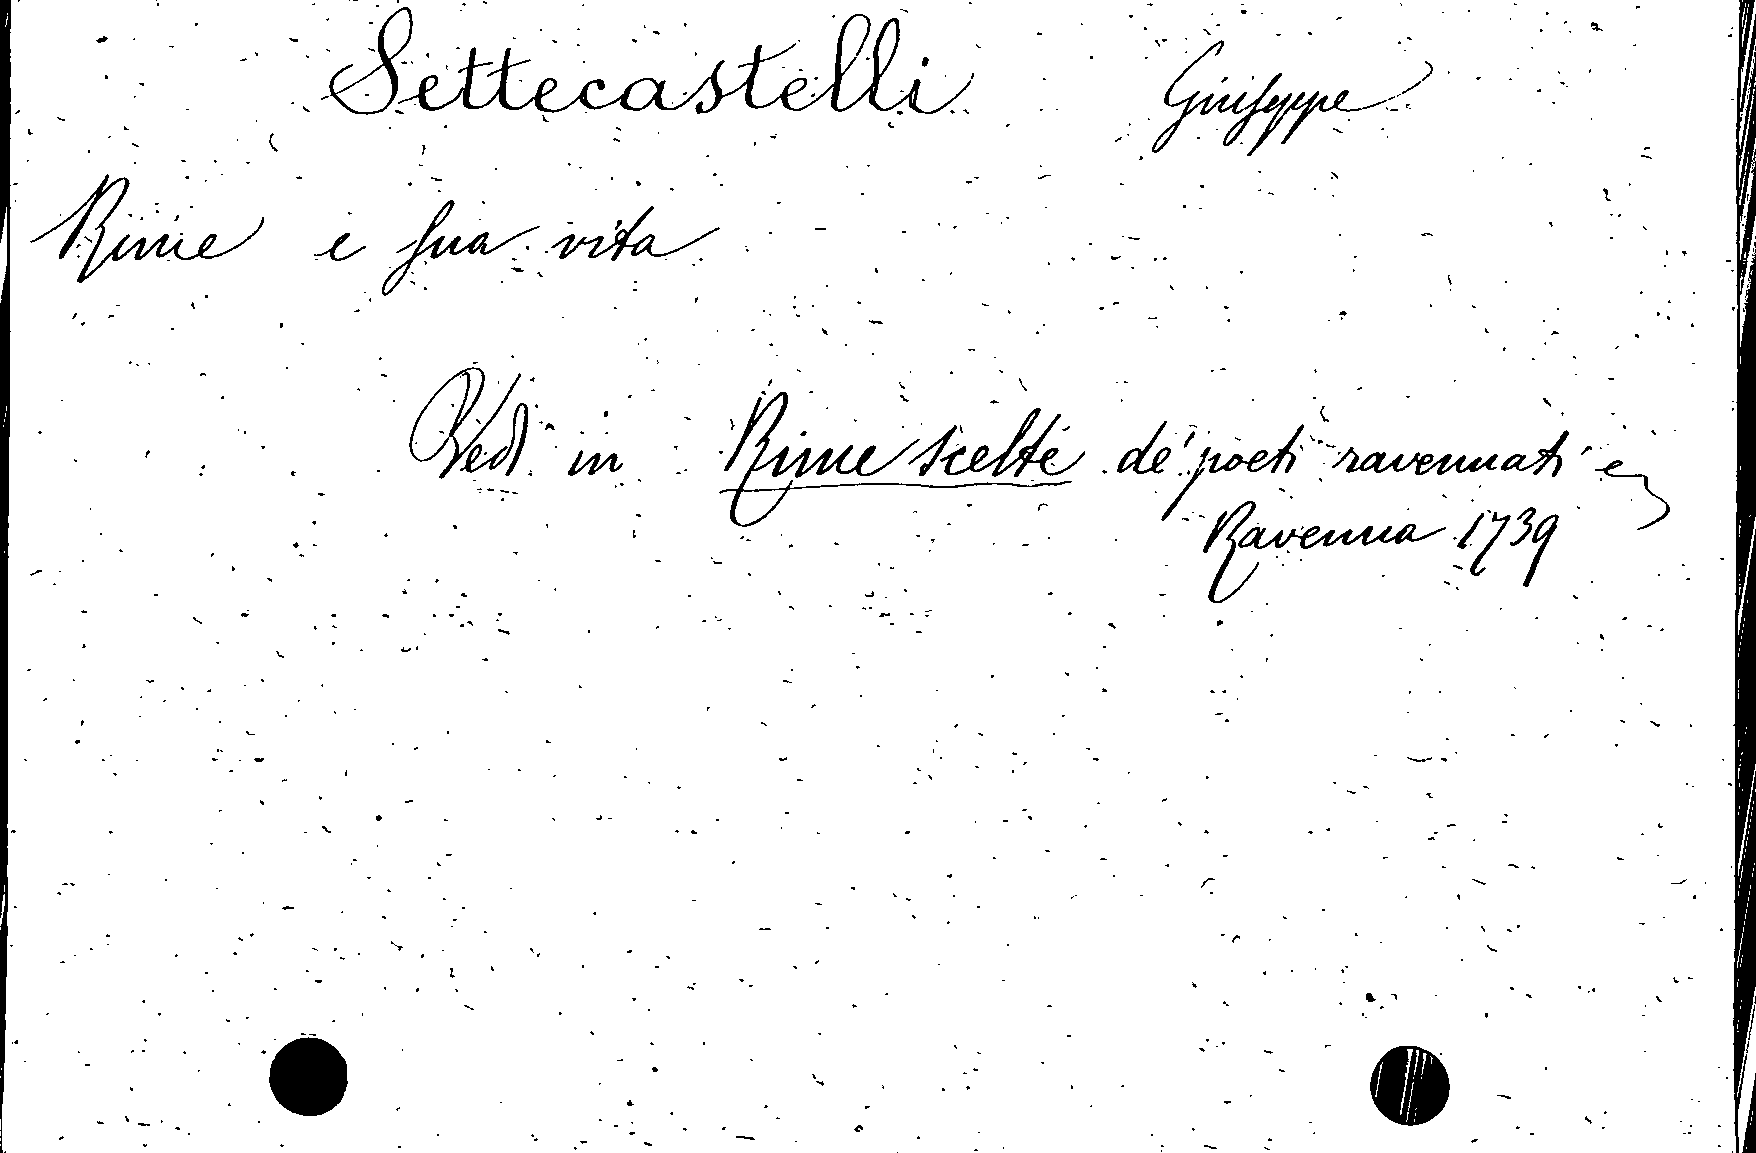 Settecastelli Giuseppe
Rime e sua vita
Vedi in Rime scelte de' poeti ravennati e
Ravenna 1739